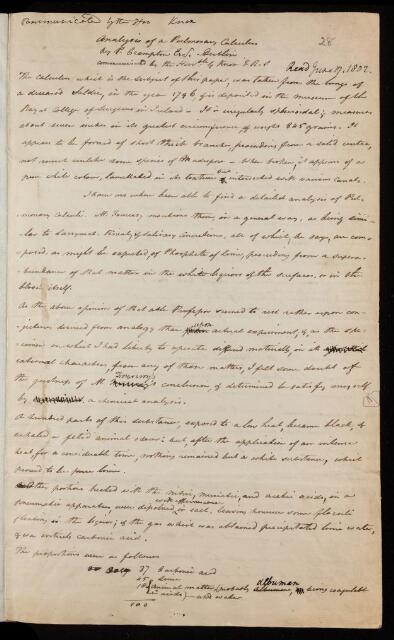 Communicated by the Hon Knox
28
Analysis of a Pulmonary Calculus
by P. Crampton Esqr. Dublin
communicated by the Hon.ble G. Knox F.R.S
Read June 17. 1802.
The calculus, which is the subject of this paper, was taken from the lungs of
a deceased Soldier, in the year 1796, & is deposited in the museum of the
Royal College of Surgeons in Ireland - It is irregularly spheroidal; measures
about seven inches in its greatest circumference, & weighs 845 grains. It
appears to be formed of short thick branches proceeding from a solid centre,
not much unlike some species of Madrepore - When broken, it appears of a
pure white colour, lamellated in its texture but intersected with various canals.
I know not where to be able to find a detailed analysis of Pul-
monary calculi. M. Fourcroy, mentions them, in a general way, as being simi-
lar to lacrymal, biliary, & salivary concretions, all of which, he says, are com-
posed, as might be expected, of Phosphate of lime, proceeding from a supera-
bundance of that matter in the white liquors of the surfaces, or in the
blood itself.
As the above opinion of that able Professor seemed to rest rather upon con-
jecture derived from analogy than upon actual experiment, & as the spe-
cimen on which I had liberty to operate differed materially, in its
external characters, from any of those matters, I felt some doubt of
the justness of M. Fourcroy's conclusion, & determined to satisfy myself
by a chemical analysis.
A hundred parts of this substance, exposed to a low heat, became black, &
exhaled a fetid animal odour; but, after the application of an intense
heat for a considerable time, nothing remained but a white substance, which
proved to be pure lime.
Other portions treated with the nitric, muriatic, and acetic acids, in a
pneumatic apparatus, were dissolved with effervescence in each, leaving however some flocculi
floating in the liquor; & the gas which was obtained precipitated lime water,
& was wholly carbonic acid.
The proportions were as follows
37 Carbonic acid
45 Lime
18 { Animal matter (probably albumen, being coagulable
in acids) - and water
100